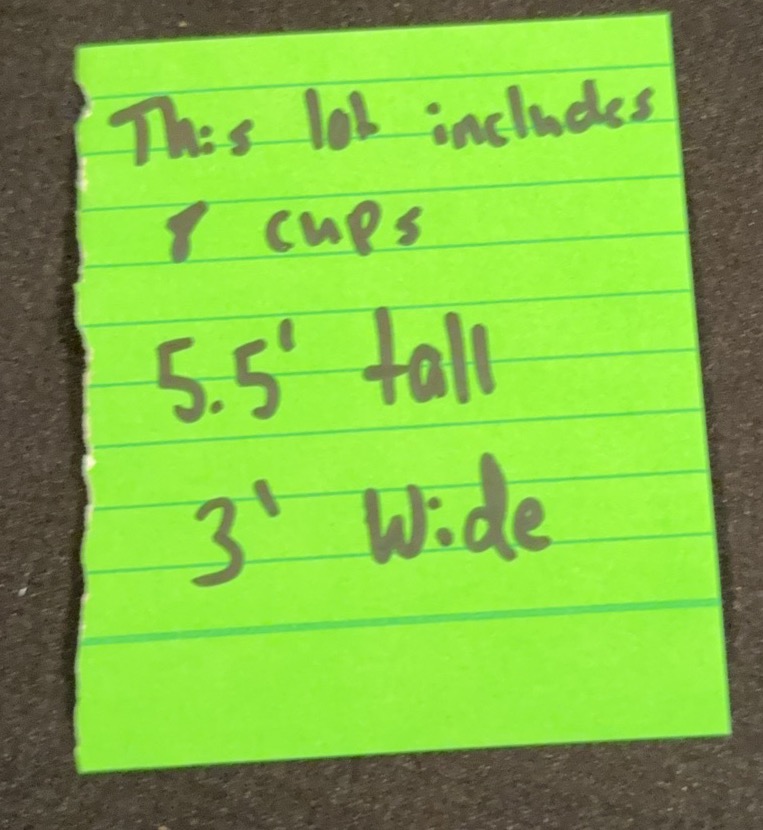 This lot includes
8 cups
5.5' tall
3' Wide